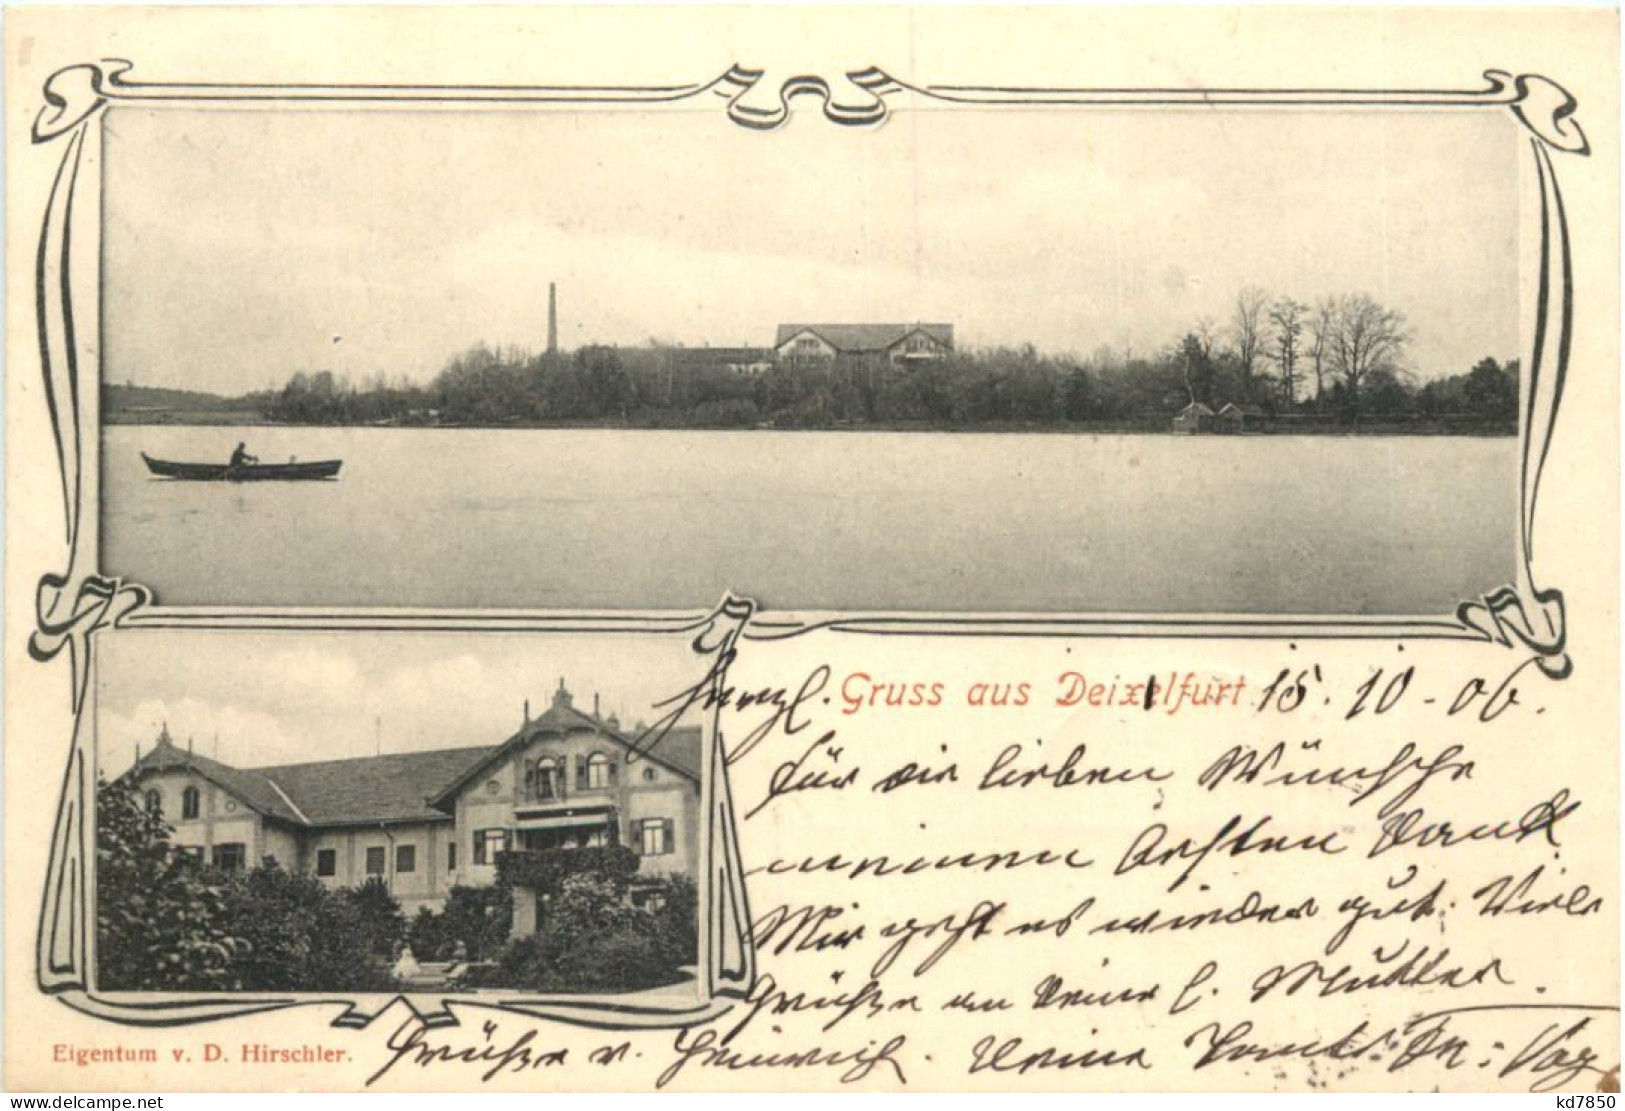 Herzl. Gruss aus Deixelfurt 15.10.06.
Für die lieben Wünsche
meinen besten Dank
Mir geht es wieder gut. Viele
Grüße an Deine l. Mutter.
Grüße v. Heinrich. Deine
Eigentum v. D. Hirschler.
kd7850